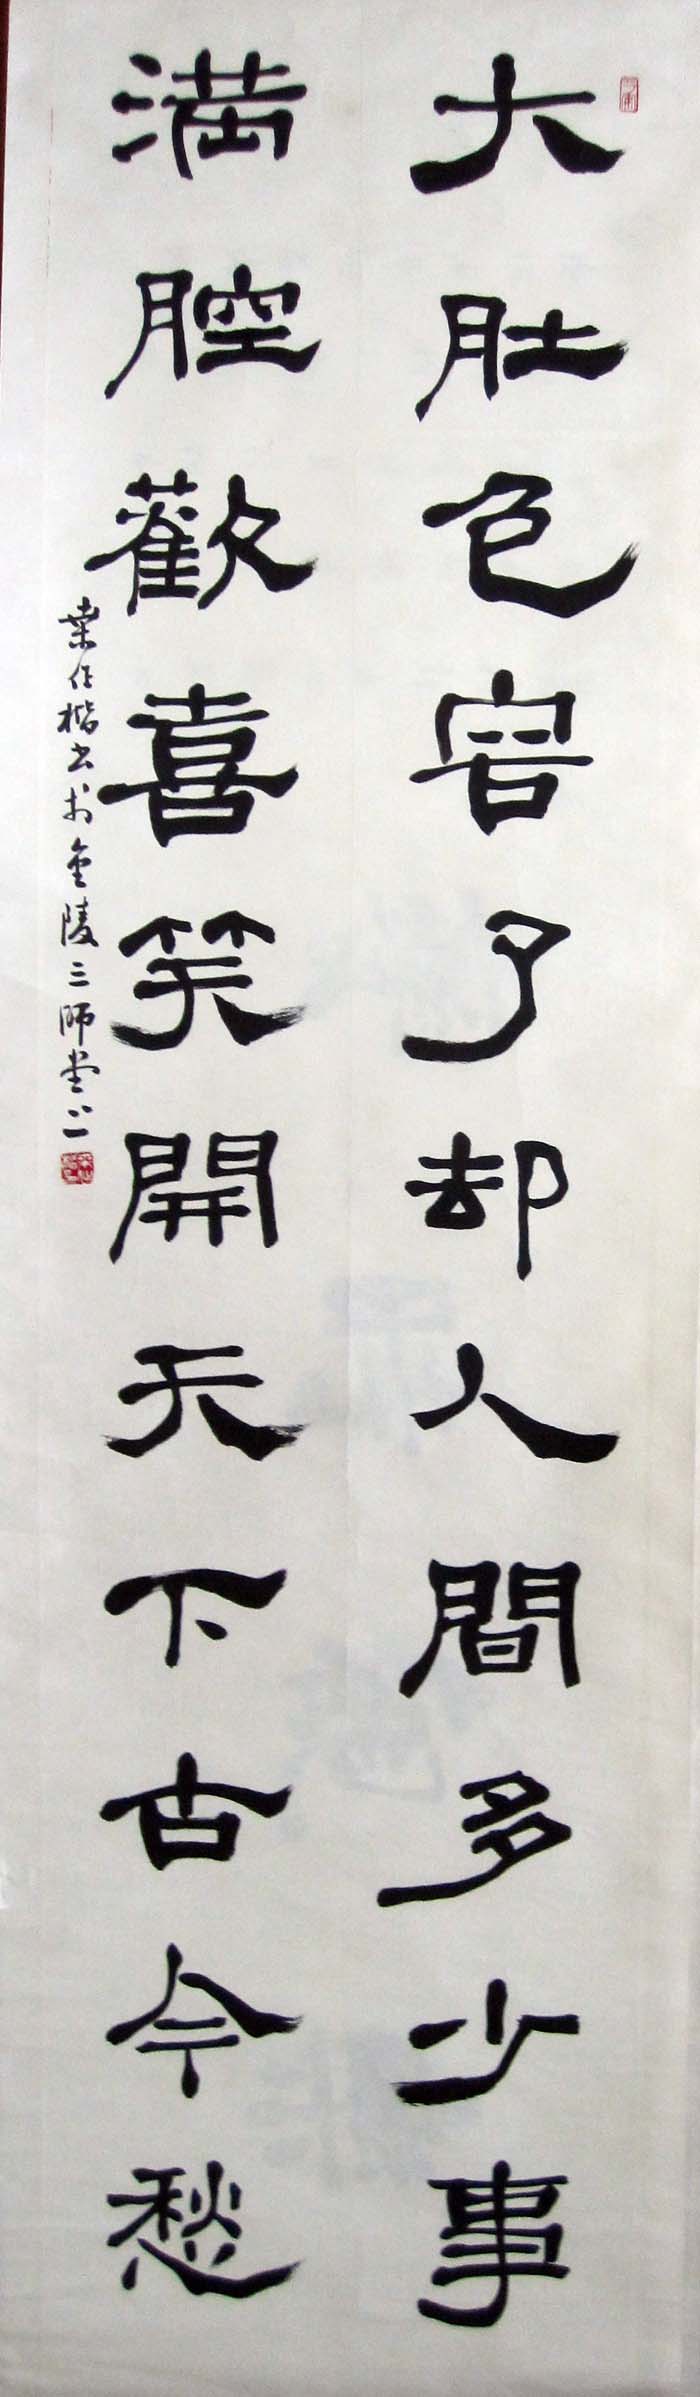 大肚包容了却人間多少事
満腔歡喜笑開天下古今愁
葉作楷书於金陵三師堂上